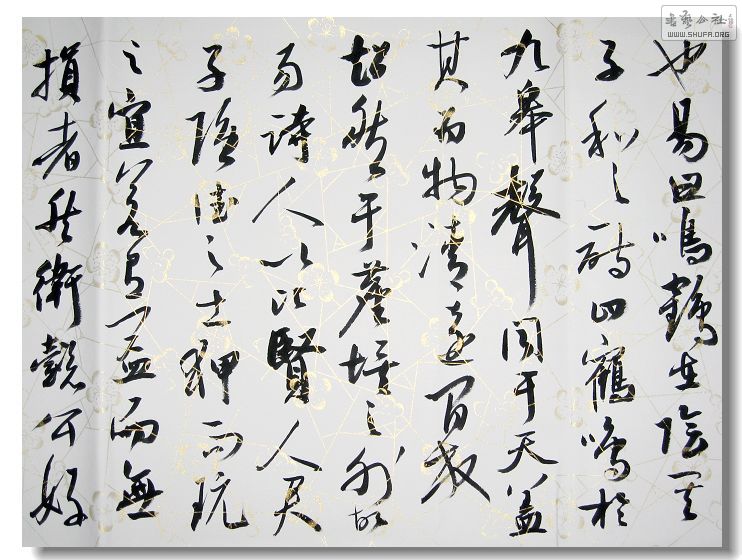 也易曰鳴鶴在陰其
子和之詩曰鶴鳴於
九皋聲聞于天蓋
其為物清遠閒放
超然于塵埃之外故
易詩人以比賢人君
子隱德之士狎而玩
之宜若有益而無
損者然衛懿公好
書藝公社
WWW.SHUFA.ORG